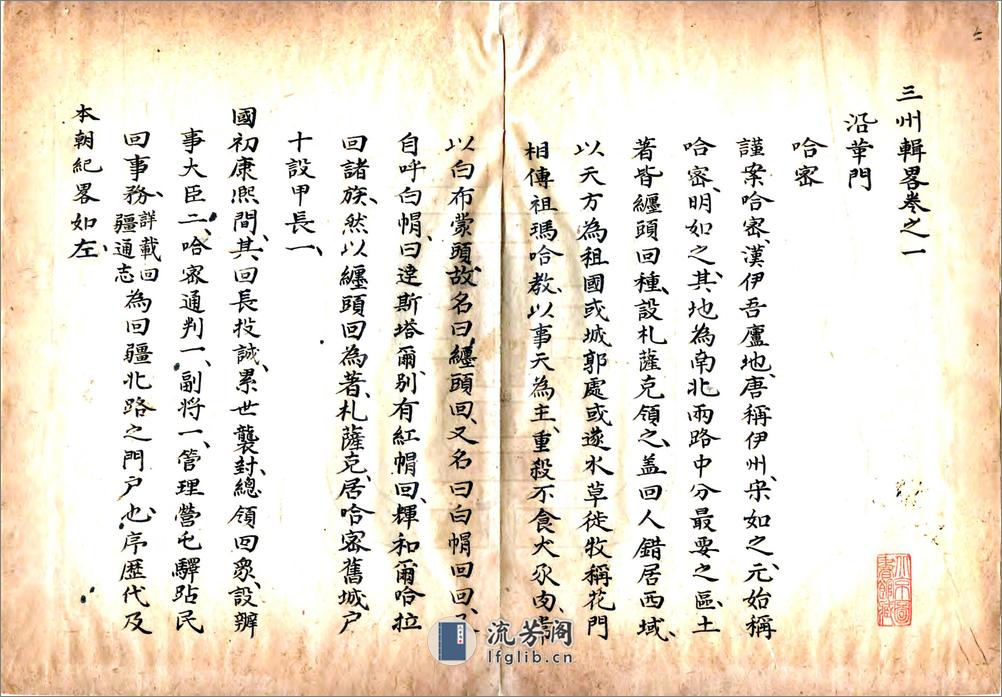 三州輯畧卷之一
沿革門
哈密
謹案哈密漢伊吾廬地唐稱伊州宋如之元始稱
哈密明如之其地為南北兩路中分最要之區土
著皆纏頭回種設札薩克領之盖回人錯居西域
以天方為祖國或城郭處或逐水草徙牧稱花門
相傳祖瑪哈教以事天為主重殺不食犬豕肉
以白布蒙頭故名曰纏頭回又名曰白帽回回
自呼白帽曰達斯塔爾别有紅帽回輝和爾哈拉
回諸族然以纏頭回為著札薩克居哈密舊城户
十設甲長一
國初康熙間其回長投誠累世襲封總領回眾設辦
事大臣二哈密通判一副將一管理營屯驛站民
回事務詳載回疆通志為回疆北路之門户也序歷代及
本朝紀畧如左
流芳阁
lfglib.cn